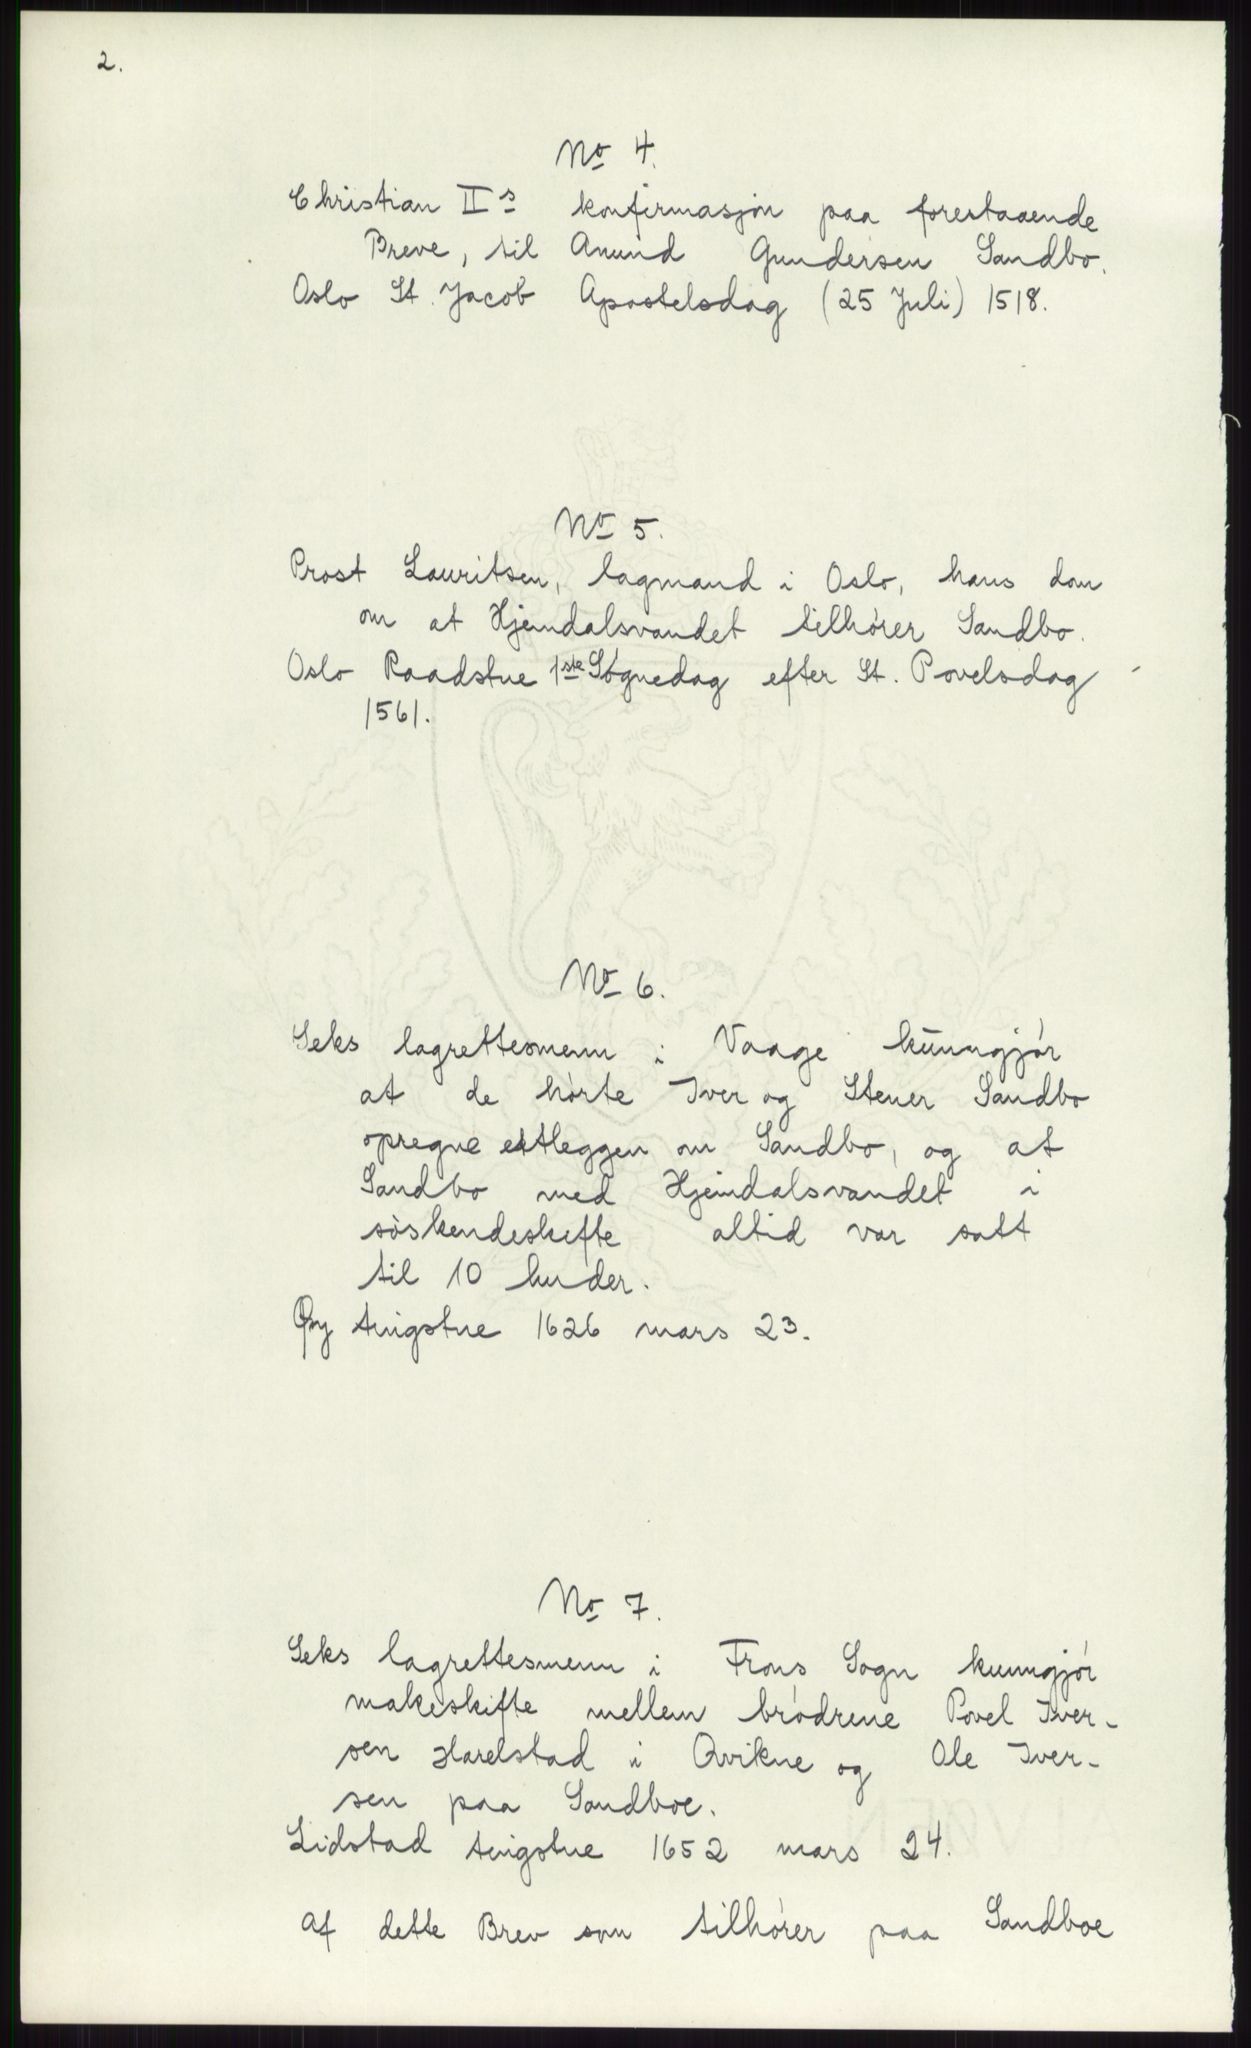 2.
No 4.
Christian IIs konfirmasjon paa forestaaende
Breve, til Anund Gundersen Sandbo.
Oslo St. Jacob Apostelsdag (25 Juli) 1518.
No 5.
Prost Lauritsen, lagmand i Oslo, hans dom
om at Hjeimdalsvandet tilhører Sandbo.
Oslo Raadstue 1ste Søgnedag efter St. Povelsdag
1561.
No 6.
Seks lagrettesmenn i Vaage kunngjør
at de hørte Iver og Stener Sandbo
opregne ettleggen om Sandbo, og at
Sandbo med Hjeimdalsvandet i
søskendeskifte altid var satt
til 10 huder.
tingstue 1626 mars 23.
No 7.
Seks lagrettesmenn i Frons Sogn kunngjør
makeskifte mellem brødrene Povel Iver-
sen Harelstad i Qvikne og Ole Iver-
sen paa Sandboe.
Lidstad tingstue 1652 mars 24.
Af dette Brev som tilhører paa Sandboe